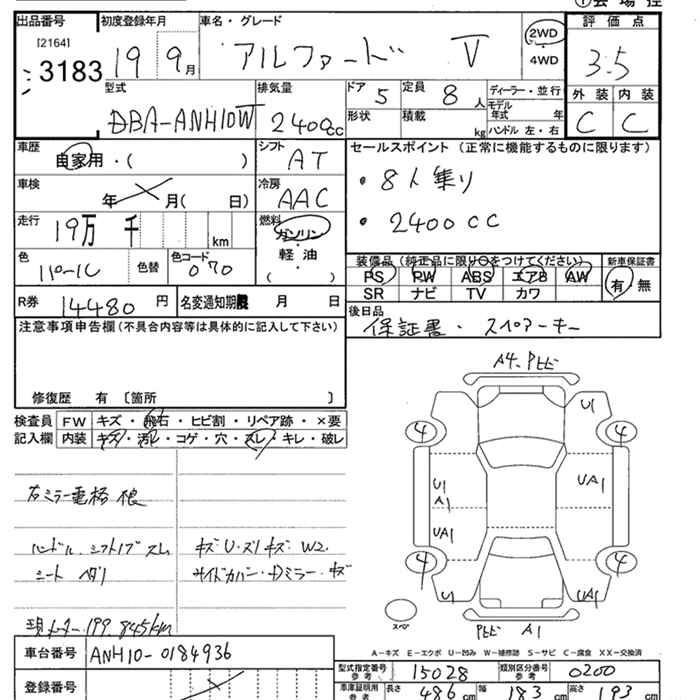 会場控
出品番号 初度登録年月 車名・グレード 評価点
[2164]
3183 19 9月 アルファード V 2WD・4WD 3.5
型式 排気量 ドア 定員 ディーラー・並行 外装 内装
DBA-ANH10W 2400cc 5 8人 モデル年式 年 C C
形状 積載 kg ハンドル 左・右
車歴 自家用・( ) シフト AT セールスポイント (正常に機能するものに限ります)
車検 年 月( 日) 冷房 AAC ・8人乗り
走行 19万 千 km 燃料 ガソリン・軽油・( ) ・2400cc
色 パール 色替 色コード 070 装備品(純正品に限り○をつけてください) 新車保証書
PS PW ABS エアB AW 有・無
SR ナビ TV カワ
R券 14480円 名変通知期限 月 日 後日品
保証書・スペアーキー
注意事項申告欄(不具合内容等は具体的に記入して下さい)
修復歴 有 〔箇所 〕
検査員記入欄 FW キズ・飛石・ヒビ割・リペア跡・×要
内装 キズ・汚れ・コゲ・穴・スレ・キレ・破レ
A4.Pヒビ
U1
4 4
U1
A1
UA1
UA1
4 4
U UA1
スペア
Pヒビ A1
右ミラー電格不良
ハンドル.シフトノブスレ キズU.ズリキズ W2.
シート ヘタリ
現メーター199,845km
A-キズ E-エクボ U-凹み W-補修跡 S-サビ C-腐食 XX-交換済
車台番号 ANH10-0184936 型式指定番号 参考 15028 類別区分番号 参考 0200
登録番号 車庫証明用 参考 長さ 486cm 幅 183cm 高さ 193cm